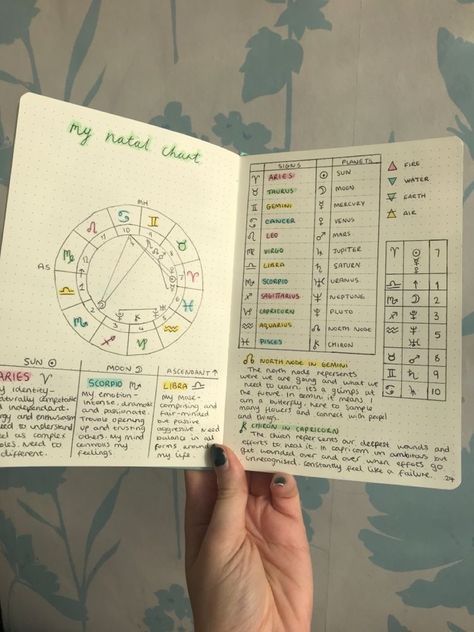 My natal chart
MH
AS
10
1
SUN ☉
MOON ☽
ASCENDANT ↑
ARIES ♈
SCORPIO ♏
LIBRA ♎
identity-
naturally competative
independant.
energy and enthusiasm
need to understand
feel as complex
Need to
different.
My emotion-
intense, dramatic
and passionate.
trouble opening
up and trusting
others. My mind
controls my
feelings.
My mask-
comprising and
fair-minded
but passive
aggressive. Need
balance in all
forms around
my life.
SIGNS
PLANETS
♈ ARIES ☉ SUN
♉ TAURUS ☽ MOON
♊ GEMINI ☿ MERCURY
♋ CANCER ♀ VENUS
♌ LEO ♂ MARS
♍ VIRGO ♃ JUPITER
♎ LIBRA ♄ SATURN
♏ SCORPIO ♅ URANUS
♐ SAGITTARIUS ♆ NEPTUNE
♑ CAPRICORN PLUTO
♒ AQUARIUS ☊ NORTH NODE
♓ PISCES CHIRON
FIRE
WATER
EARTH
AIR
♈ ☉ 7
♎ ↑ 1
♏ ☽ 2
3
5
8
9
10
☊ NORTH NODE IN GEMINI
The north node represents
were we are going and what we
need to learn. It's a glimps at
the future. In gemini it means I
am a butterfly. here to sample
many flowers and connect with people
and things.
CHIRON IN CAPRICORN
The chiron represents our deepest wounds and
efforts to heal it. In capricorn im ambitous but
get wounded over and over when efforts go
unrecognised. constantly feel like a failure..
24